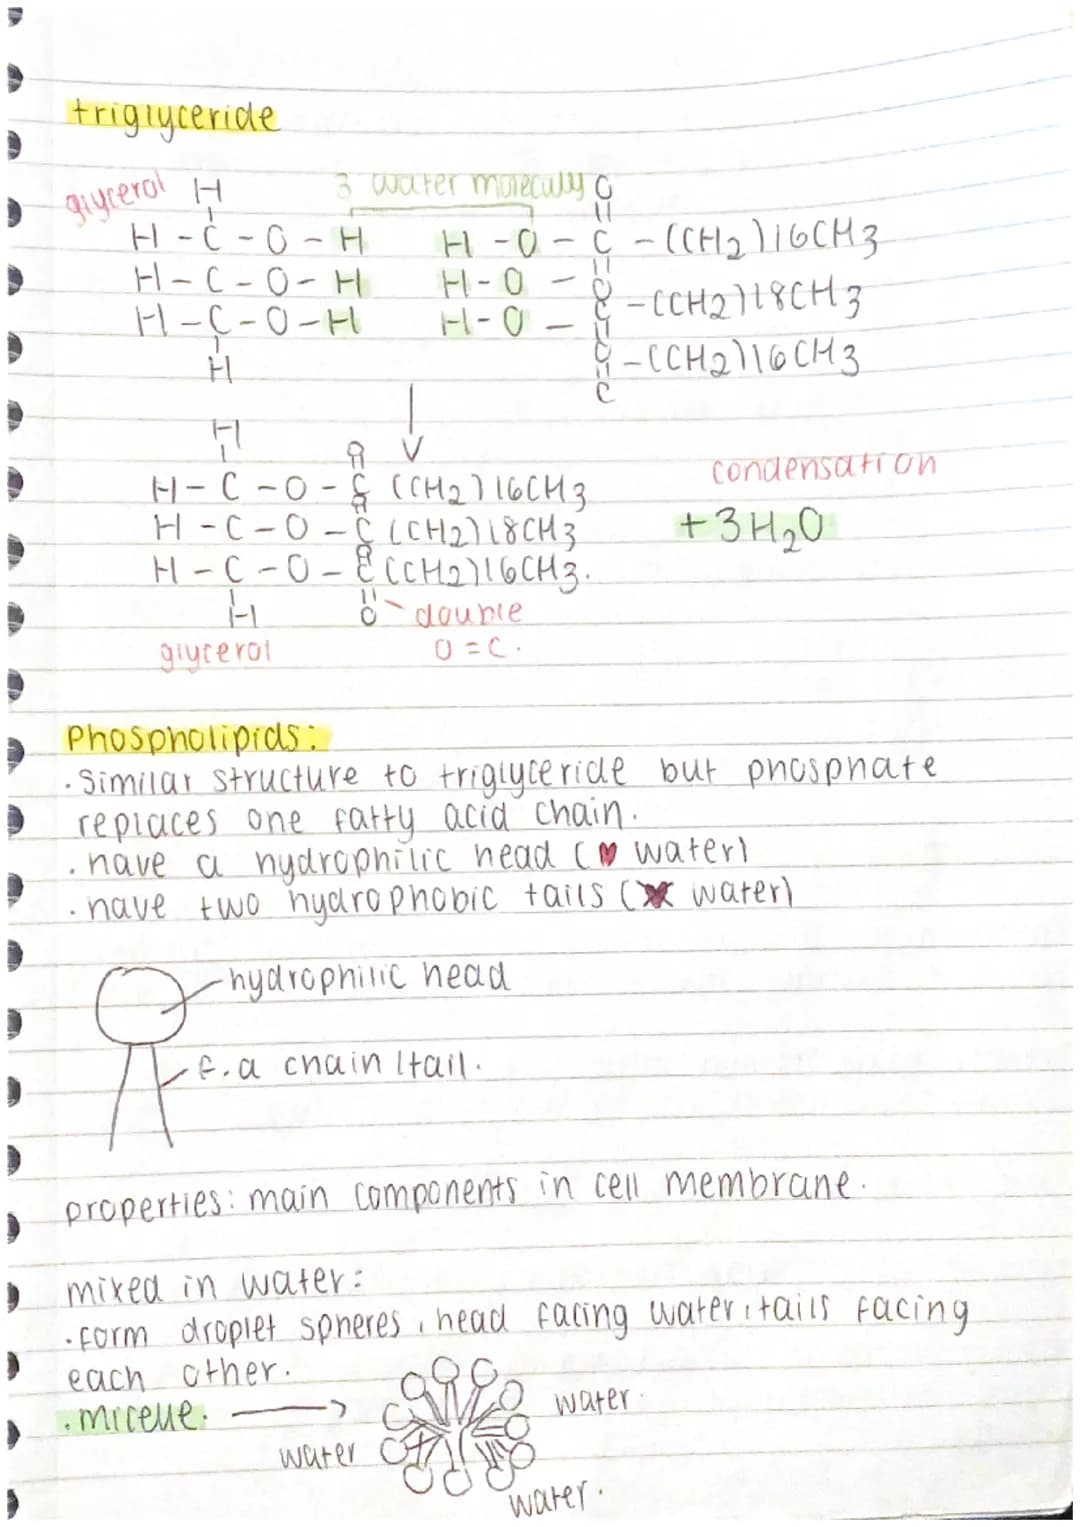 triglyceride
glycerol H 3 water molecully O
H - C - O - H H - O - C - (CH2)16CH3
H - C - O - H H - O - C - (CH2)18CH3
H - C - O - H H - O - C - (CH2)16CH3
H C
H
H - C - O - C (CH2)16CH3 condensation
H - C - O - C (CH2)18CH3 +3H2O
H - C - O - C (CH2)16CH3.
H O double
glycerol O = C.
Phospholipids:
· Similar structure to triglyceride but phosphate
replaces one fatty acid chain.
· have a hydrophilic head (♥ water)
· have two hydrophobic tails ( water)
hydrophilic head
f.a chain/tail.
properties: main components in cell membrane.
mixed in water:
· form droplet spheres, head facing water, tails facing
each other.
· micelle. → water.
water
water.